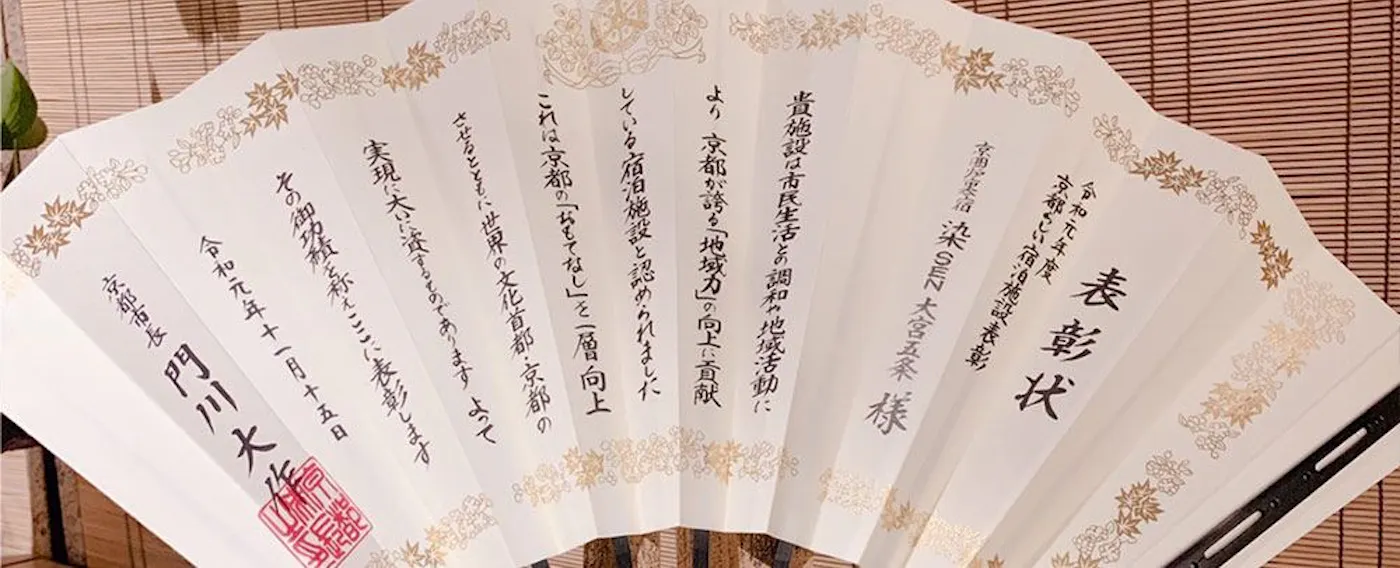 表彰状
令和元年度
京都らしい宿泊施設表彰
染·SEN 大宮五条 様
貴施設は市民生活との調和や地域活動に
より 京都が誇る「地域力」の向上に貢献
している宿泊施設と認められました
これは京都の「おもてなし」を一層向上
させるとともに世界の文化首都・京都の
実現に大いに資するものであります よって
その御功績を称えここに表彰します
令和元年十一月十五日
京都市長 門川大作